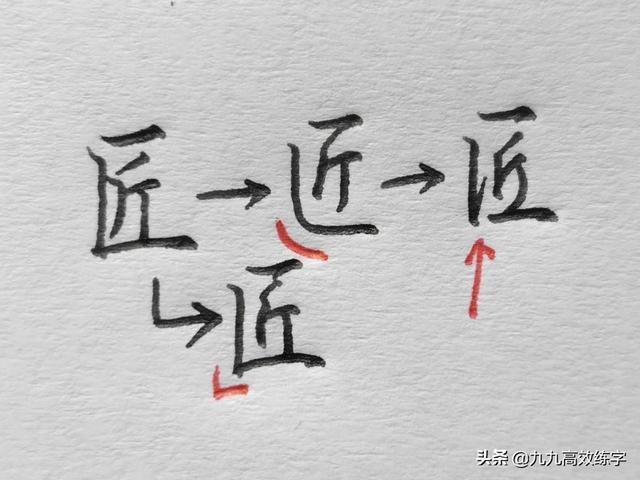 匠 → 匠 → 匠
匠
头条 @九九高效练字